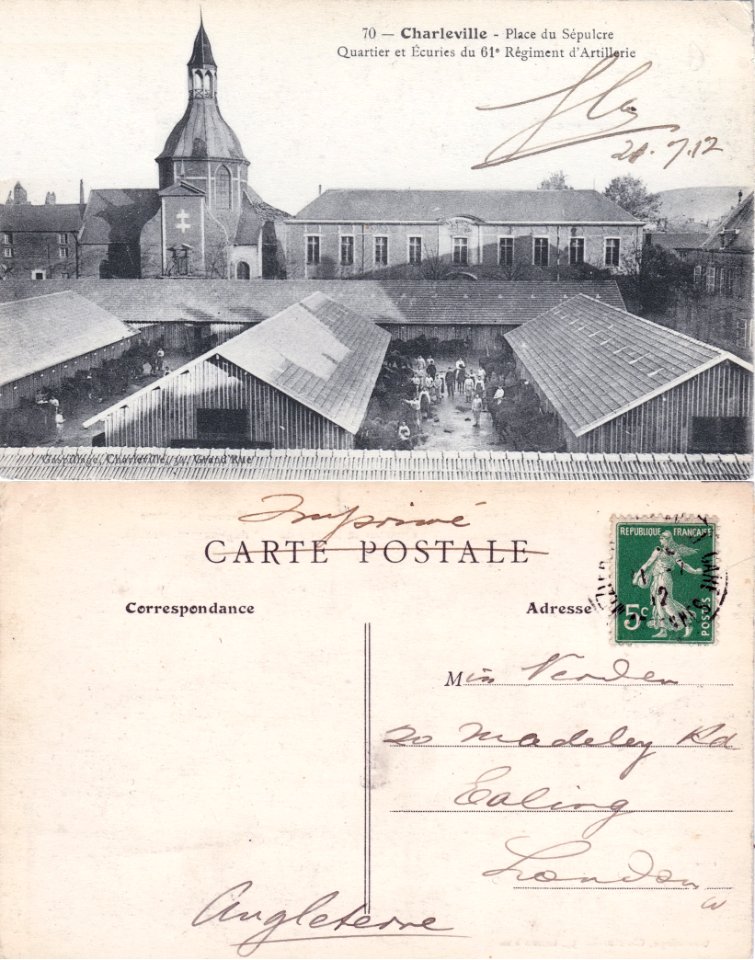 70 — Charleville - Place du Sépulcre
Quartier et Écuries du 61e Régiment d'Artillerie
20.7.12
Gaspillage, Charleville, 34, Grand'Rue
Imprimé
CARTE POSTALE
RÉPUBLIQUE FRANÇAISE
5c
POSTES
GARE
12
Correspondance
Adresse
Miss Verden
20 Madeley Rd
Ealing
London
W
Angleterre